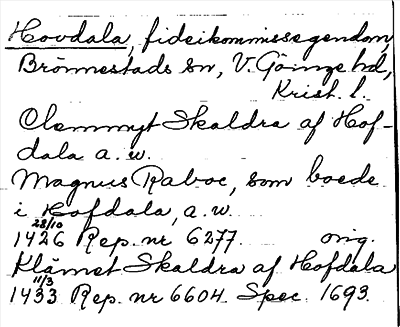 Hovdala, fideikommissegendom,
Brönnestads sn, V. Göinge hd,
Krist. l.
Clemmyt Skaldra af Hof-
dala a. w.
Magnus Raboc, som boede
i Hofdala, a. w.
28/10
1426 Rep. nr 6277. orig.
Klämet Skaldra af Hofdala
11/3
1433 Rep. nr 6604. Spec. 1693.